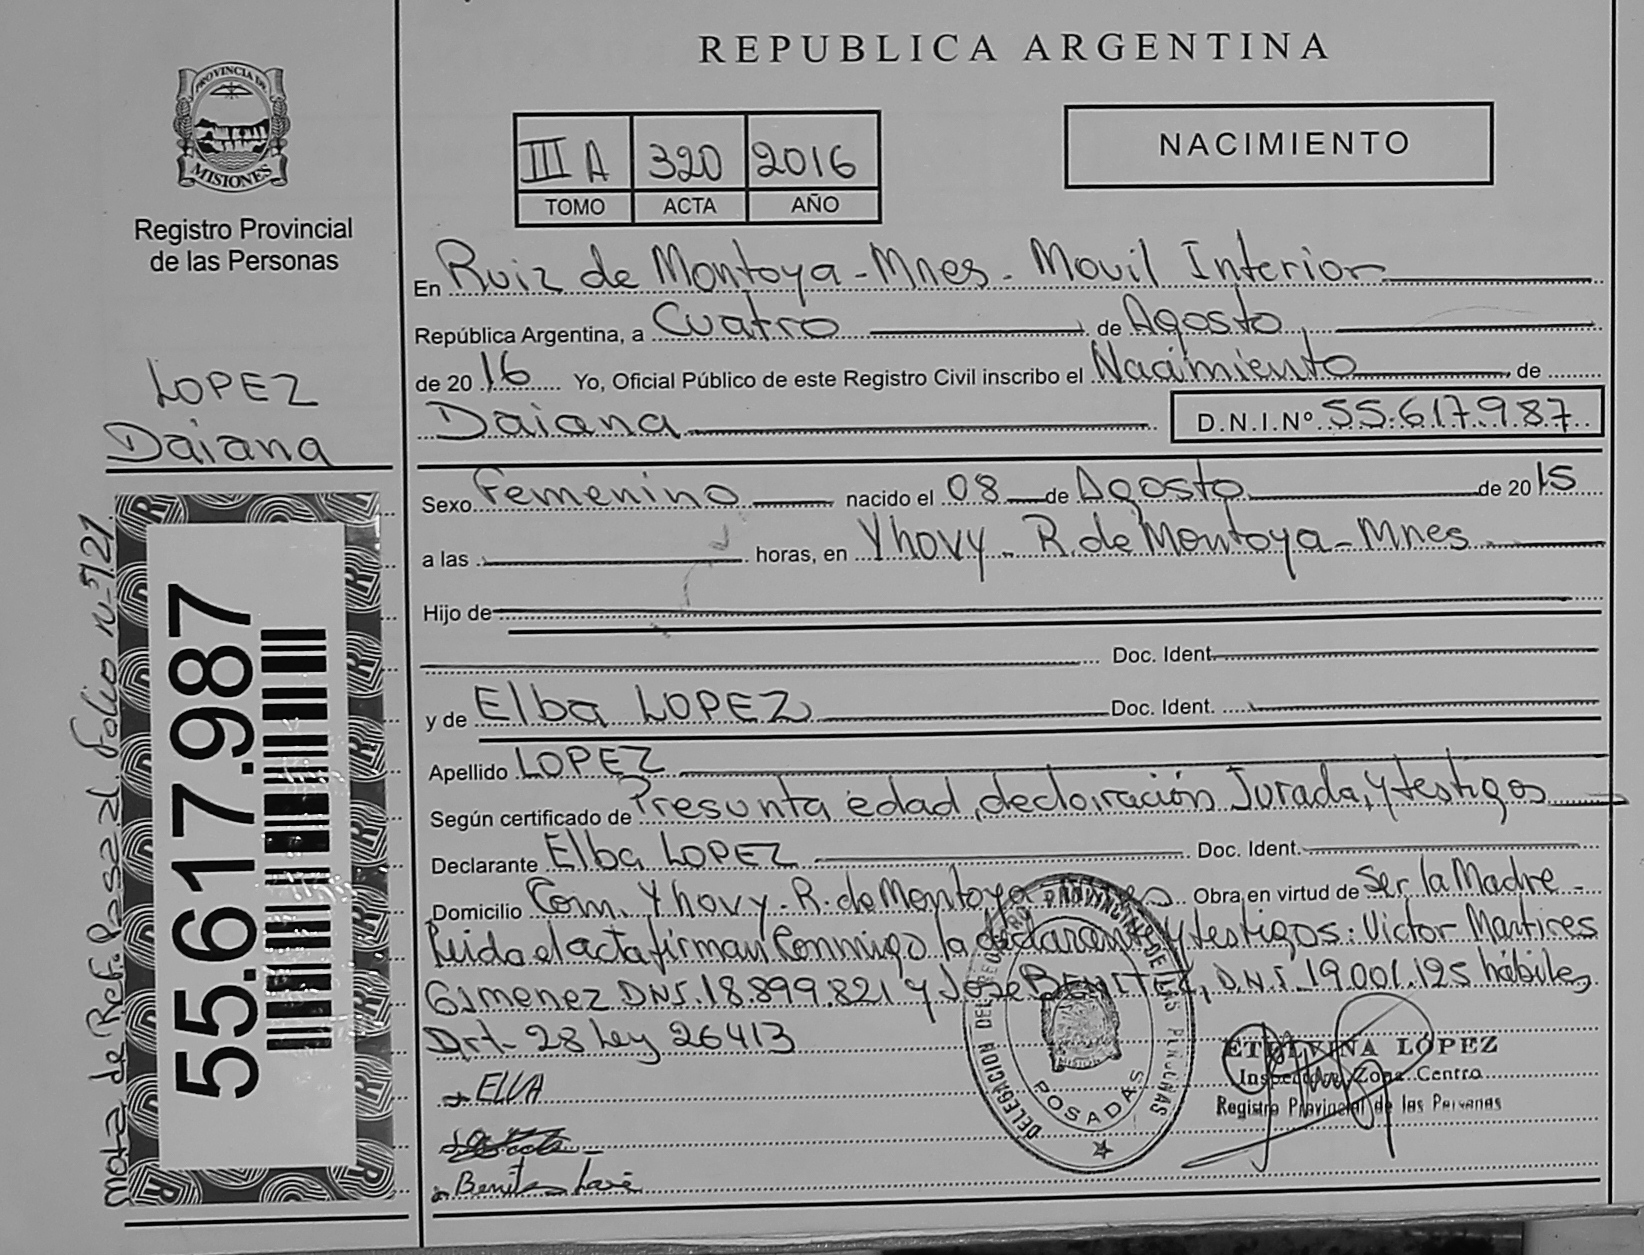 REPUBLICA ARGENTINA
PROVINCIA DE
MISIONES
Registro Provincial
de las Personas
III A 320 2016
TOMO ACTA AÑO
NACIMIENTO
En Ruiz de Montoya - Mnes - Movil Interior
República Argentina, a Cuatro de Agosto
de 2016 Yo, Oficial Público de este Registro Civil inscribo el Nacimiento, de
Daiana D.N.I.Nº 55.617.987
LOPEZ
Daiana
Sexo Femenino nacido el 08 de Agosto de 2015
a las horas, en Yhovy - R. de Montoya - Mnes
Hijo de
Doc. Ident.
y de Elba LOPEZ Doc. Ident.
Apellido LOPEZ
Según certificado de Presunta edad, declaración Jurada, y testigos
Declarante Elba LOPEZ Doc. Ident.
Domicilio Com. Yhovy - R. de Montoya Obra en virtud de Ser la Madre -
Leida el acta firman Conmigo la declarante y testigos: Victor Martires
Gimenez DNI. 18.899.821 y Jose BENITEZ, D.N.I. 19.001.125 hábiles,
Art- 28 Ley 26413
ELVA
Benitez José
DELEGACION DEL REGISTRO PROVINCIAL DE LAS PERSONAS
POSADAS
ETELVINA LOPEZ
Inspectora Zona Centro
Registro Provincial de las Personas
55.617.987
nota de Ref. Pasa al folio nº 721